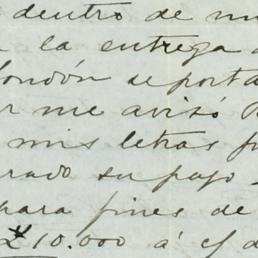 dentro de mi
a la entrega
London se porta
me avisó
mis letras
rado su pago
para fines de
£10.000 á c/ d